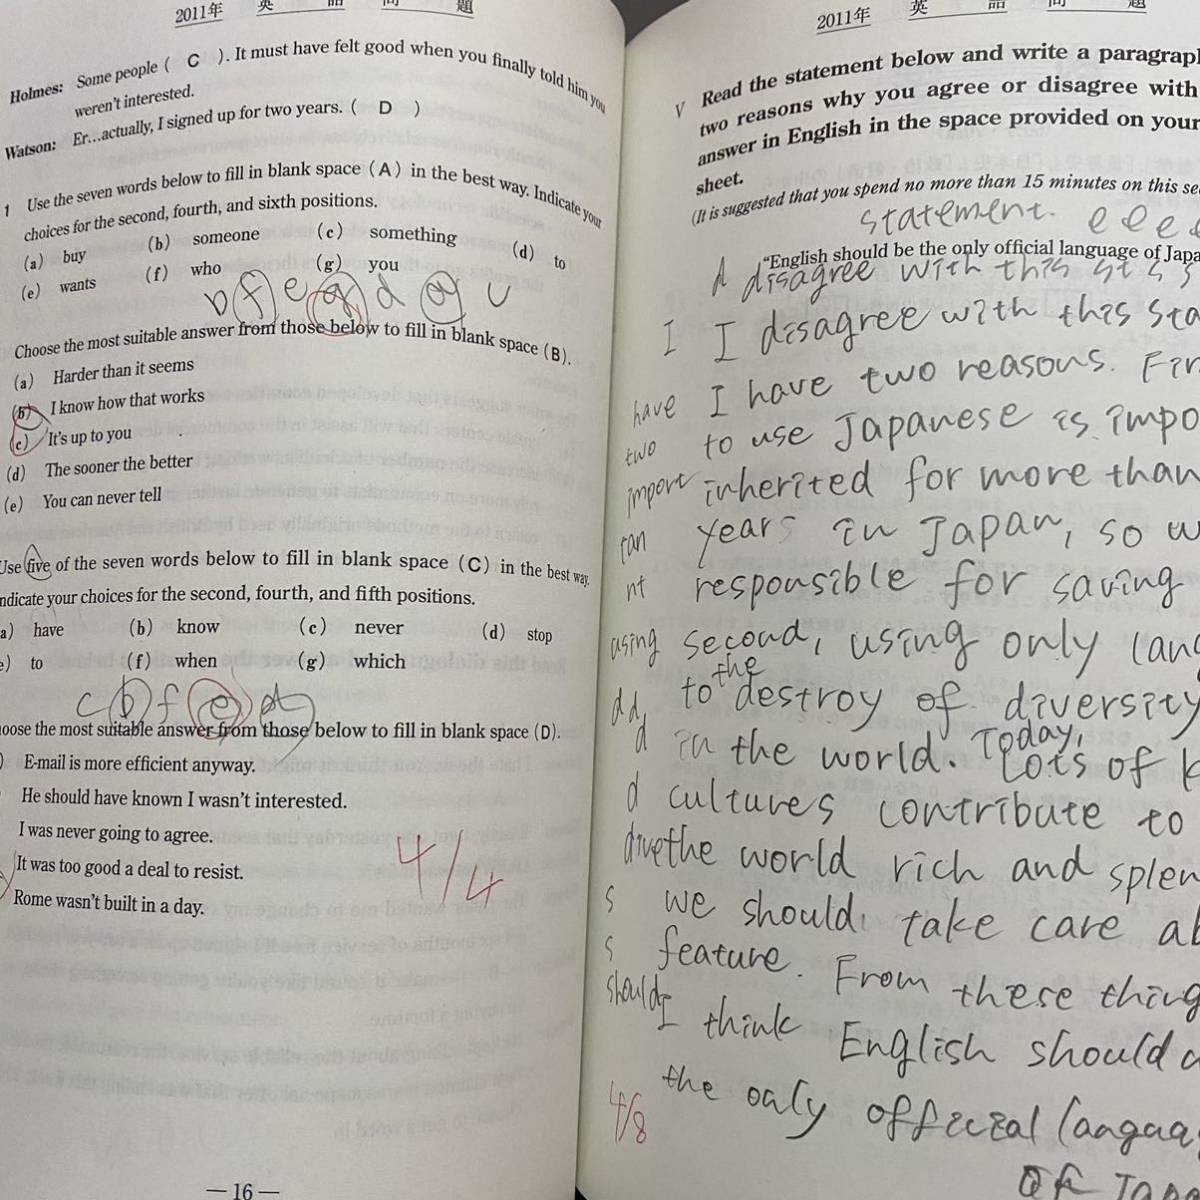 2011年 英 語 問 題
Holmes: Some people ( C ). It must have felt good when you finally told him you
weren't interested.
Watson: Er…actually, I signed up for two years. ( D )
1 Use the seven words below to fill in blank space (A) in the best way. Indicate your
choices for the second, fourth, and sixth positions.
(a) buy (b) someone (c) something (d) to
(e) wants (f) who (g) you
b f e g d a c
Choose the most suitable answer from those below to fill in blank space (B).
(a) Harder than it seems
(b) I know how that works
(c) It's up to you
(d) The sooner the better
(e) You can never tell
Use five of the seven words below to fill in blank space (C) in the best way.
Indicate your choices for the second, fourth, and fifth positions.
a) have (b) know (c) never (d) stop
e) to (f) when (g) which
c b f e d
oose the most suitable answer from those below to fill in blank space (D).
) E-mail is more efficient anyway.
He should have known I wasn't interested.
I was never going to agree.
It was too good a deal to resist.
Rome wasn't built in a day.
4/4
— 16 —
2011年 英 語 問 題
V Read the statement below and write a paragraph
two reasons why you agree or disagree with
answer in English in the space provided on your
sheet.
(It is suggested that you spend no more than 15 minutes on this se
statement. e e e e
"English should be the only official language of Japa
d disagree with this st s s
I I disagree with this sta
have I have two reasons. Fir
two to use Japanese is impo
import inherited for more than
tan years in Japan, so w
nt responsible for saving
using second, using only lang
dd, to the destroy of diversity
d in the world. Today, Lots of k
d cultures contribute to
dive the world rich and splen
s we should take care ab
s feature. From these thing
should I think English should
4/8 the only official langua
of Japa